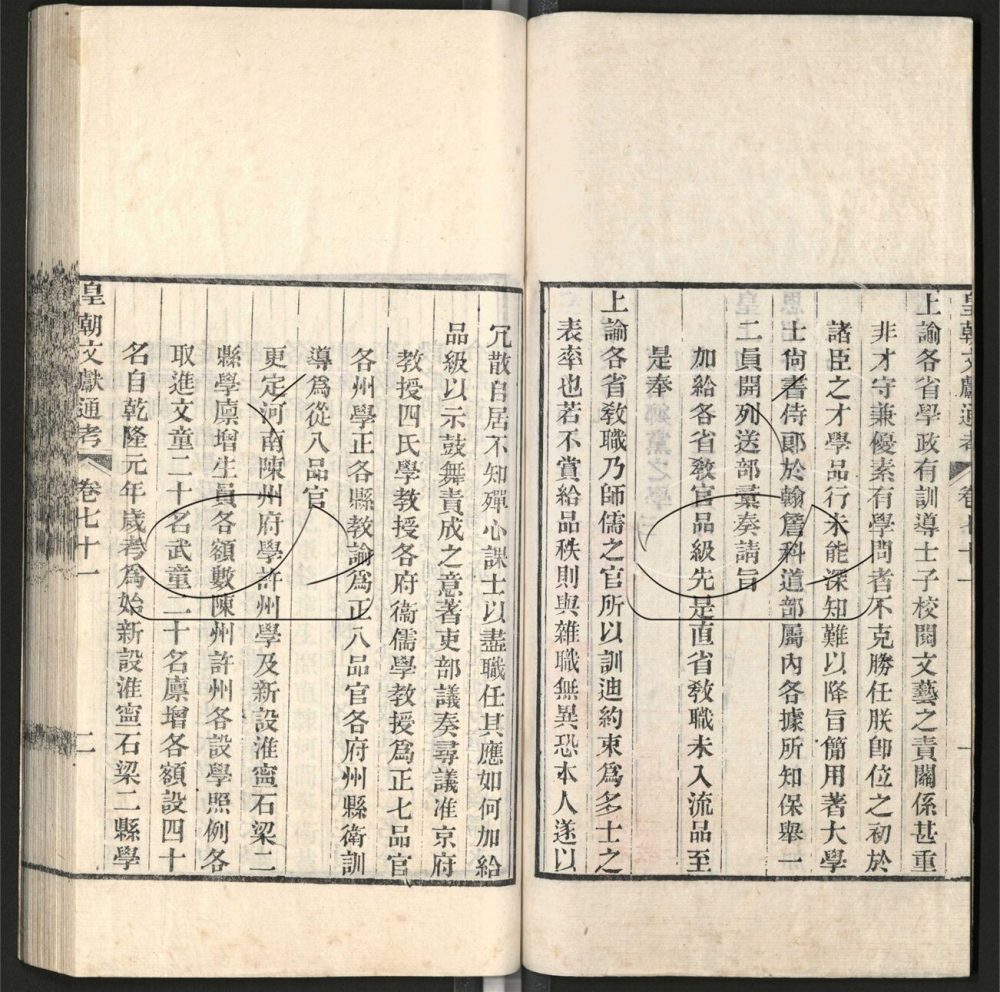 皇朝文獻通考 卷七十一 一
上諭各省學政有訓導士子校閱文藝之責關係甚重
非才守兼優素有學問者不克勝任朕卽位之初於
諸臣之才學品行未能深知難以降旨簡用著大學
士尙書侍郞於翰詹科道部屬內各據所知保舉一
二員開列送部彙奏請旨
加給各省敎官品級先是直省敎職未入流品至
是奉
上諭各省敎職乃師儒之官所以訓迪約束爲多士之
表率也若不賞給品秩則與雜職無異恐本人遂以
冗散自居不知殫心課士以盡職任其應如何加給
品級以示鼓舞責成之意著吏部議奏尋議准京府
敎授四氏學敎授各府衞儒學敎授爲正七品官
各州學正各縣敎諭爲正八品官各府州縣衞訓
導爲從八品官
更定河南陳州府學許州學及新設淮寧石梁二
縣學廩增生員各額數陳州許州各設學照例各
取進文童二十名武童二十名廩增各額設四十
名自乾隆元年歲考爲始新設淮寧石梁二縣學
皇朝文獻通考 卷七十一 二